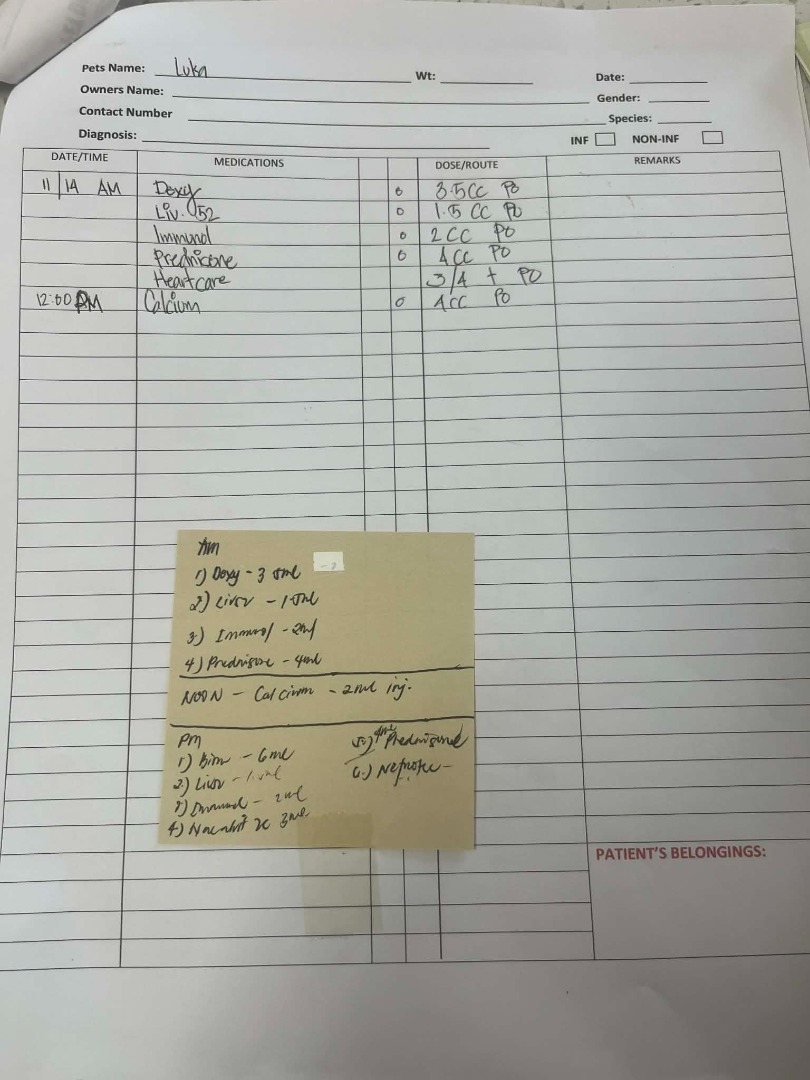 Pets Name: Luka Wt: Date:
Owners Name: Gender:
Contact Number Species:
Diagnosis: INF NON-INF
DATE/TIME MEDICATIONS DOSE/ROUTE REMARKS
11/14 AM Doxy 3.5CC PO
Liv. 52 1.5 CC PO
Immunol 2 CC PO
Prednicone 4CC PO
Heartcare 3/4 t PO
12:00 PM Calcium 4CC PO
Am
1) Doxy - 3 5ml
2) Liver - 1.5ml
3) Immunol - 2ml
4) Prednisone - 4ml
NOON - Calcium - 2ml inj.
Pm
1) - 6ml
2) Liver - 1.5ml
3) - 2ml
4) 3ml
5.) 4ml Prednisone
6.)
PATIENT'S BELONGINGS: